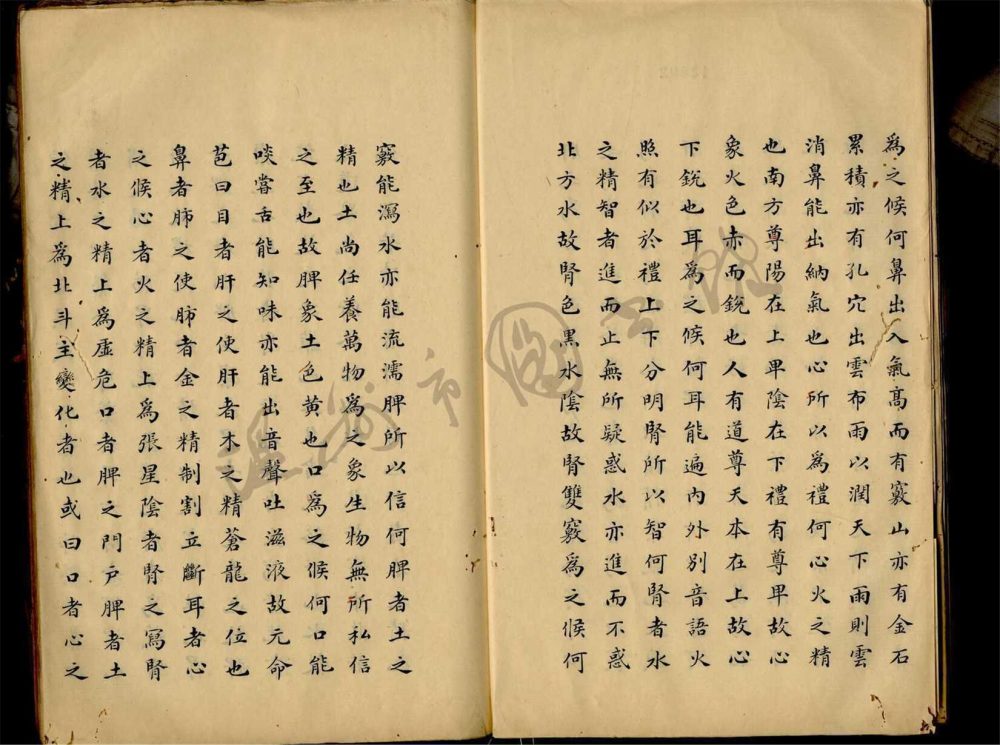 爲之候何鼻出入氣髙而有竅山亦有金石
累積亦有孔穴出雲布雨以潤天下雨則雲
消鼻能出納氣也心所以為禮何心火之精
也南方尊陽在上卑陰在下禮有尊卑故心
象火色赤而銳也人有道尊天本在上故心
下銳也耳爲之候何耳能遍内外別音語火
照有似於禮上下分明腎所以智何腎者水
之精智者進而止無所疑惑水亦進而不惑
北方水故腎色黑水陰故腎雙竅爲之候何
竅能瀉水亦能流濡脾所以信何脾者土之
精也土尚任養萬物爲之象生物無所私信
之至也故脾象土色黄也口爲之候何口能
啖嘗舌能知味亦能出音聲吐滋液故元命
苞曰目者肝之使肝者木之精蒼龍之位也
鼻者肺之使肺者金之精制割立斷耳者心
之候心者火之精上爲張星陰者腎之寫腎
者水之精上爲虚危口者脾之門户脾者土
之精上爲北斗主變化者也或曰口者心之
温州市圖